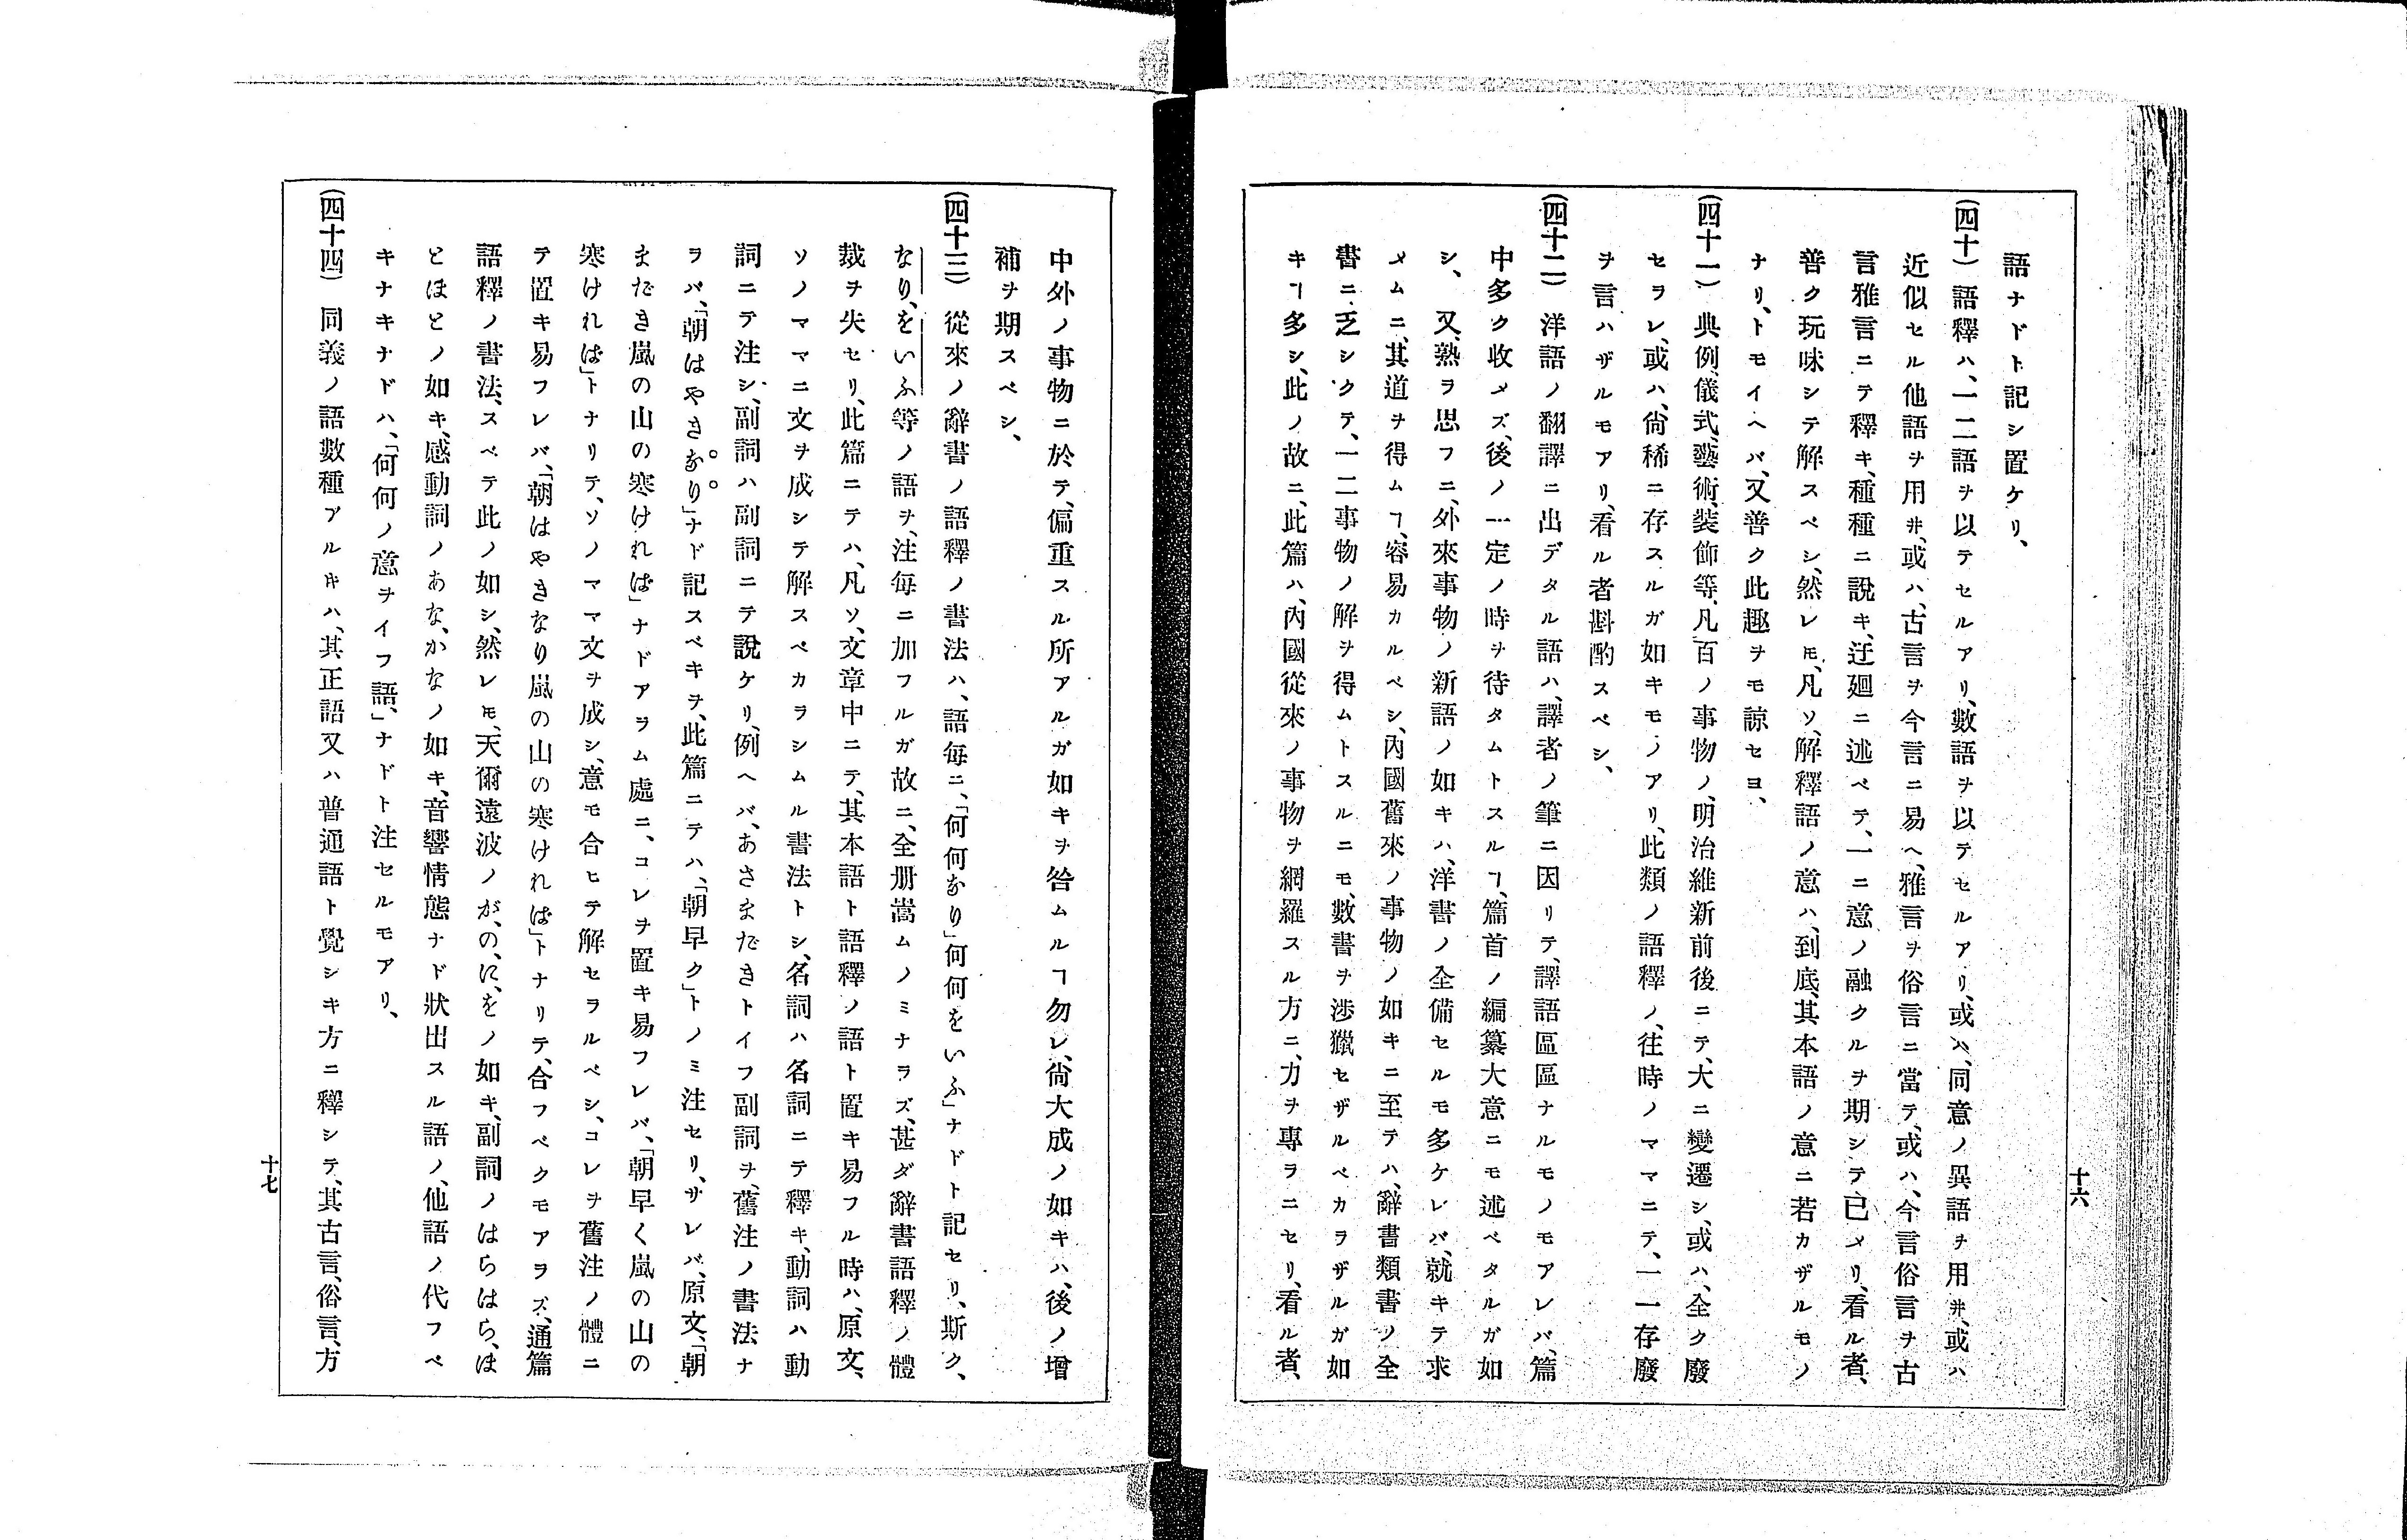 語ナドト記シ置ケリ、
(四十)語釋ハ、一二語ヲ以テセルアリ、數語ヲ以テセルアリ、或ハ、同意ノ異語ヲ用ヰ、或ハ
近似セル他語ヲ用ヰ、或ハ、古言ヲ今言ニ易ヘ、雅言ヲ俗言ニ當テ、或ハ、今言俗言ヲ古
言雅言ニテ釋キ、種種ニ說キ、迂廻ニ述ベテ、一ニ意ノ融クルヲ期シテ、已メリ、看ル者、
善ク玩味シテ解スベシ、然レ𪜈、凡ソ、解釋語ノ意ハ、到底、其本語ノ意ニ若カザルモノ
ナリ、トモイヘバ、又善ク此趣ヲモ諒セヨ、
(四十一)典例、儀式、藝術、裝飾等、凡百ノ事物ノ、明治維新前後ニテ、大ニ變遷シ、或ハ、全ク廢
セラレ、或ハ、尙稀ニ存スルガ如キモノアリ、此類ノ語釋ノ、往時ノママニテ、一一存廢
ヲ言ハザルモアリ、看ル者斟酌スベシ、
(四十二)洋語ノ翻譯ニ出デタル語ハ、譯者ノ筆ニ因リテ、譯語區區ナルモノモアレバ、篇
中多ク收メズ、後ノ一定ノ時ヲ待タムトスルヿ、篇首ノ編纂大意ニモ述ベタルガ如
シ、又、熟ヲ思フニ、外來事物ノ新語ノ如キハ、洋書ノ全備セルモ多ケレバ、就キテ求
メムニ、其道ヲ得ムヿ、容易カルベシ、內國舊來ノ事物ノ如キニ至テハ、辭書類書ノ全
書ニ乏シクテ、一二事物ノ解ヲ得ムトスルニモ、數書ヲ渉獵セザルベカラザルガ如
キヿ多シ、此ノ故ニ、此篇ハ、內國從來ノ事物ヲ網羅スル方ニ、力ヲ專ラニセリ、看ル者、
十六
中外ノ事物ニ於テ、偏重スル所アルガ如キヲ咎ムルヿ勿レ、尙大成ノ如キハ、後ノ增
補ヲ期スベシ、
(四十三)從來ノ辭書ノ語釋ノ書法ハ、語每ニ、「何何なり」何何をいふ」ナドト記セリ、斯ク、
なり、をいふ等ノ語ヲ、注每ニ加フルガ故ニ、全册嵩ムノミナラズ、甚ダ辭書語釋ノ體
裁ヲ失セリ、此篇ニテハ、凡ソ、文章中ニテ、其本語ト語釋ノ語ト置キ易フル時ハ、原文、
ソノママニ文ヲ成シテ解スベカラシムル書法トシ、名詞ハ名詞ニテ釋キ、動詞ハ動
詞ニテ注シ、副詞ハ副詞ニテ說ケリ、例ヘバ、あさまだきトイフ副詞ヲ、舊注ノ書法ナ
ラバ、「朝はやきなり」ナド記スベキヲ、此篇ニテハ、「朝早ク」トノミ注セリ、サレバ、原文、「朝
まだき嵐の山の寒ければ」ナドアラム處ニ、コレヲ置キ易フレバ、「朝早く嵐の山の
寒ければ」トナリテ、ソノママ文ヲ成シ、意モ合ヒテ解セラルベシ、コレヲ舊注ノ體ニ
テ置キ易フレバ、「朝はやきなり嵐の山の寒ければ」トナリテ、合フベクモアラズ、通篇
語釋ノ書法、スベテ此ノ如シ、然レ𪜈、天爾遠波ノが、の、に、をノ如キ、副詞ノはらはら、ほ
とほとノ如キ、感動詞ノあな、かなノ如キ、音響情態ナド狀出スル語ノ、他語ノ代フベ
キナキナドハ、「何何ノ意ヲイフ語、」ナドト注セルモアリ、
(四十四)同義ノ語數種アルキハ、其正語又ハ普通語ト覺シキ方ニ釋シテ、其古言、俗言、方
十七